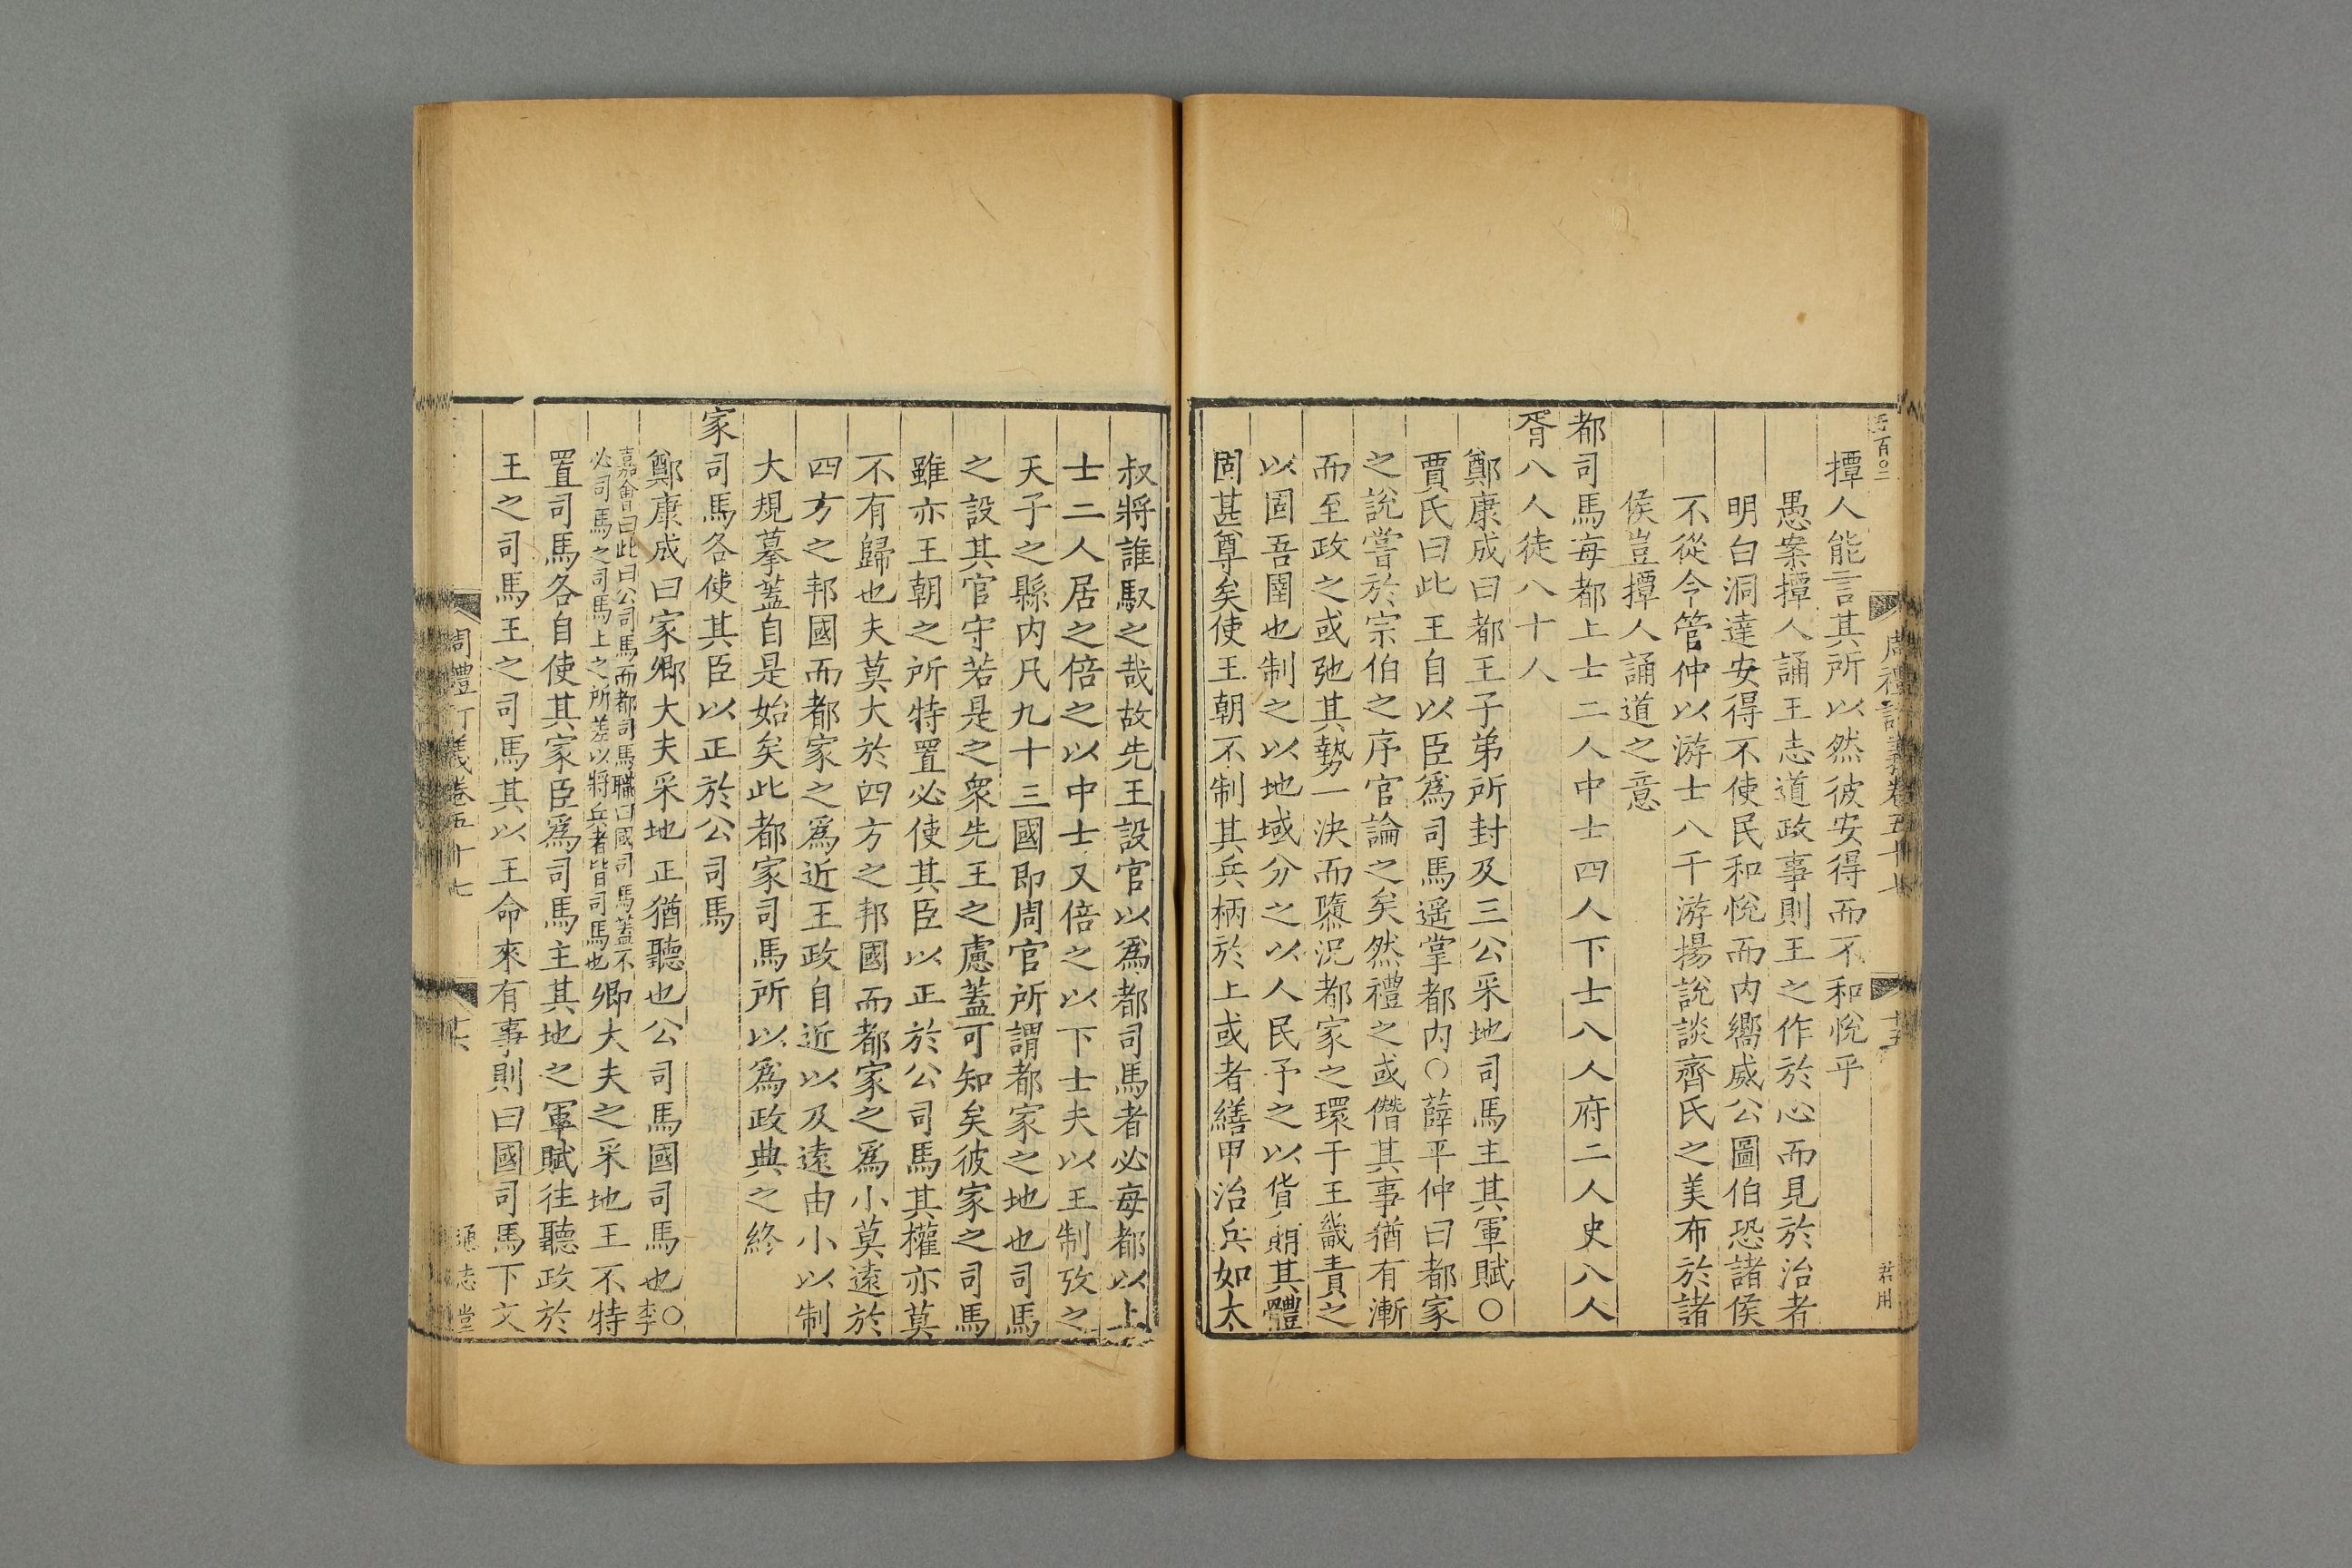 周禮訂義卷五十七
十五
君用
撢人能言其所以然彼安得而不和悅乎
愚案撢人誦王志道政事則王之作於心而見於治者
明白洞達安得不使民和悅而內嚮威公圖伯恐諸侯
不從今管仲以游士八千游揚說談齊氏之美布於諸
侯豈撢人誦道之意
都司馬每都上士二人中士四人下士八人府二人史八人
胥八人徒八十人
鄭康成曰都王子弟所封及三公采地司馬主其軍賦○
賈氏曰此王自以臣爲司馬遥掌都内○薛平仲曰都家
之說嘗於宗伯之序官論之矣然禮之或僭其事猶有漸
而至政之或弛其勢一決而隳況都家之環于王畿責之
以固吾圉也制之以地域分之以人民予之以貨賄其體
固甚尊矣使王朝不制其兵柄於上或者繕甲治兵如太
叔將誰馭之哉故先王設官以爲都司馬者必每都以上
士二人居之倍之以中士又倍之以下士夫以王制攷之
天子之縣内凡九十三國即周官所謂都家之地也司馬
之設其官守若是之衆先王之慮蓋可知矣彼家之司馬
雖亦王朝之所特置必使其臣以正於公司馬其權亦莫
不有歸也夫莫大於四方之邦國而都家之爲小莫遠於
四方之邦國而都家之爲近王政自近以及遠由小以制
大規摹蓋自是始矣此都家司馬所以爲政典之終
家司馬各使其臣以正於公司馬
鄭康成曰家卿大夫采地正猶聽也公司馬國司馬也○李
嘉會曰此曰公司馬而都司馬職曰國司馬蓋不
必司馬之司馬上之所差以將兵者皆司馬也卿大夫之采地王不特
置司馬各自使其家臣爲司馬主其地之軍賦往聽政於
王之司馬王之司馬其以王命來有事則曰國司馬下文
周禮訂義卷五十七
十六
通志堂